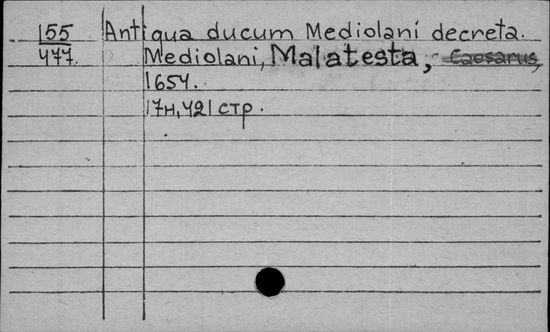 155 Antiqua ducum Mediolani decreta.
477. Mediolani, Malatesta, Caesarus,
1654.
17н, 421 стр.